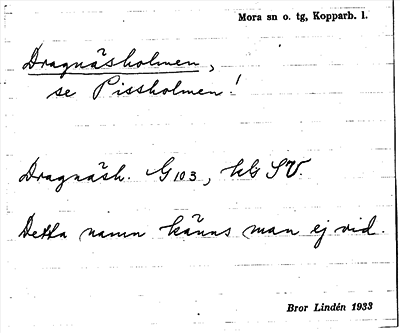 Mora sn o. tg, Kopparb. l.
Dragnäsholmen,
se Pissholmen!
Dragnäsh. G103, kbl SV.
Detta namn känns man ej vid.
Bror Lindén 1933